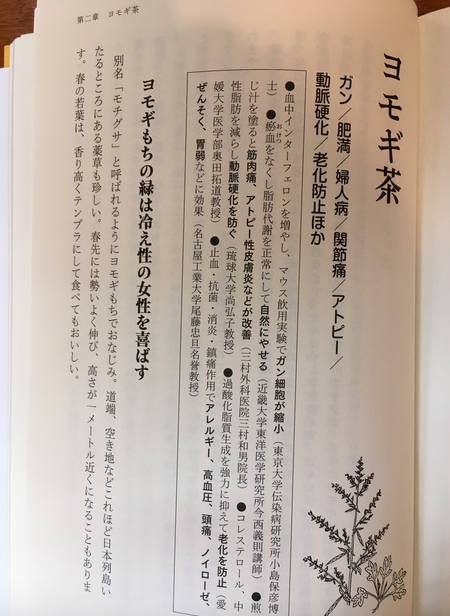 第二章 ヨモギ茶
ヨモギ茶
ガン／肥満／婦人病／関節痛／アトピー／
動脈硬化／老化防止ほか
●血中インターフェロンを増やし、マウス飲用実験でガン細胞が縮小（東京大学伝染病研究所小島保彦博
士）●瘀血をなくし脂肪代謝を正常にして自然にやせる（近畿大学東洋医学研究所今西義則講師）●煎
おけつ
じ汁を塗ると筋肉痛、アトピー性皮膚炎などが改善（三村外科医院三村和男院長）●コレステロール、中
性脂肪を減らし動脈硬化を防ぐ（琉球大学尚弘子教授）●過酸化脂質生成を強力に抑えて老化を防止（愛
媛大学医学部奥田拓道教授）●止血・抗菌・消炎・鎮痛作用でアレルギー、高血圧、頭痛、ノイローゼ、
ぜんそく、胃弱などに効果（名古屋工業大学尾藤忠旦名誉教授）
ヨモギもちの緑は冷え性の女性を喜ばす
別名「モチグサ」と呼ばれるようにヨモギもちでおなじみ。道端、空き地などこれほど日本列島い
たるところにある薬草も珍しい。春先には勢いよく伸び、高さが一メートル近くになることもありま
す。春の若葉は、香り高くテンプラにして食べてもおいしい。